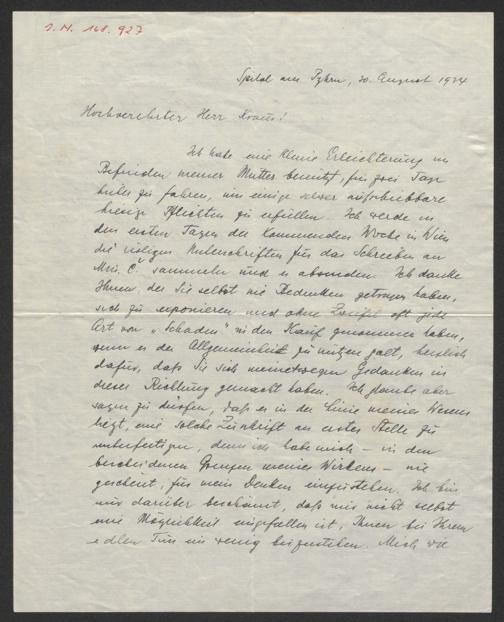 J. N. 168.927
Spital am Pyhrn, 30. August 1934
Hochverehrter Herr Kraus!
Ich habe eine kleine Erleichterung im
Befinden meiner Mutter benützt, für zwei Tage
hieher zu fahren, um einige schwer aufschiebbare
hiesige Pflichten zu erfüllen. Ich werde in
den ersten Tagen der kommenden Woche in Wien
die nötigen Unterschriften für das Schreiben an
Mrs. C. sammeln und es absenden. Ich danke
Ihnen, der Sie selbst nie Bedenken getragen haben,
sich zu exponieren und ohne Zweifel oft jede
Art von „Schaden" in den Kauf genommen haben,
wenn es der Allgemeinheit zu nützen galt, herzlich
dafür, daß Sie sich meinetwegen Gedanken in
dieser Richtung gemacht haben. Ich glaube aber
sagen zu dürfen, daß es in der Linie meines Wesens
liegt, eine solche Zuschrift an erster Stelle zu
unterfertigen, denn ich habe mich – in den
bescheidenen Grenzen meines Wirkens – nie
gescheut, für mein Denken einzustehen. Ich bin
nur darüber beschämt, daß mir nicht selbst
eine Möglichkeit eingefallen ist, Ihnen bei Ihrem
edlen Tun ein wenig beizustehen. Mich wie